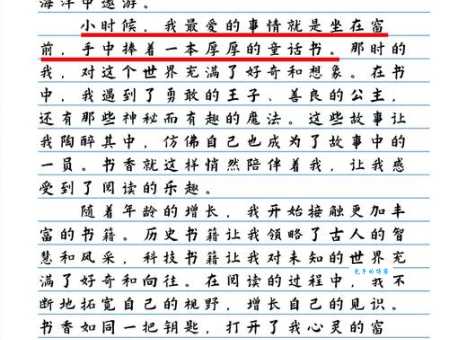 海洋中遨游。
小时候，我最爱的事情就是坐在富
前，手中捧着一本厚厚的童话书。那时的
我，对这个世界充满了好奇和想象。在书
中，我遇到了勇敢的王子、善良的公主，
还有那些神秘而有趣的魔法。这些故事让
我陶醉其中，仿佛自己也成为了故事中的
一员。书香就这样悄然陪伴着我，让我感
受到了阅读的乐趣。
随着年龄的增长，我开始接触更加丰
富的书籍。历史书籍让我领略了古人的智
慧和风采，科技书籍让我对未知的世界充
满了好奇和向往。在阅读的过程中，我不
断地拓宽自己的视野，增长自己的见识。
书香如同一把钥匙，打开了我心灵的富